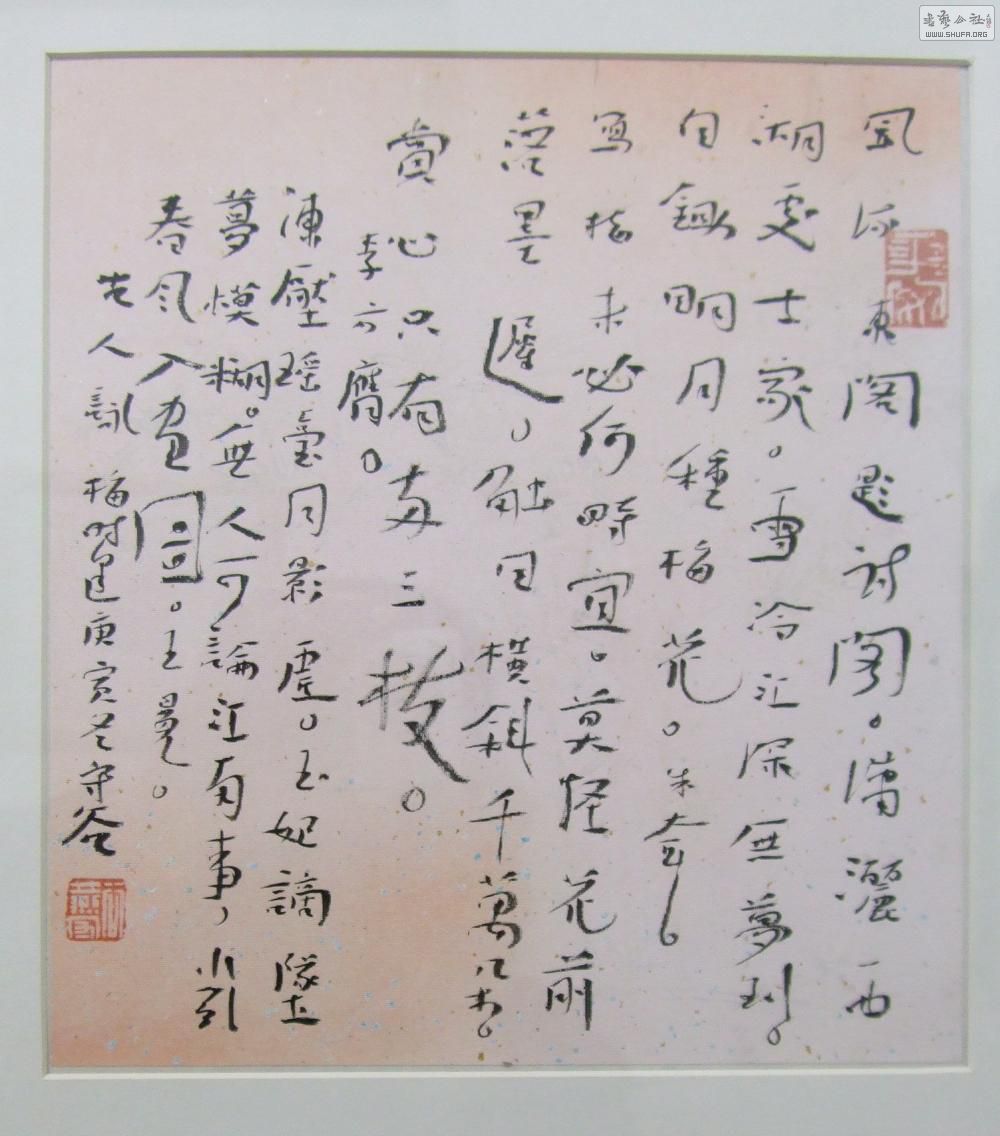 書藝公社
WWW.SHUFA.ORG
風流東閣題詩閣。瀟灑西
湖處士家。雪冷江深無夢到。
自鋤明月種梅花。朱耷
寫梅未必何時宜。莫怪花前
落墨遲。觸目橫斜千萬朵。
賞心只有兩三枝。
李方膺。
凍壓瑤臺月影虛。玉妃謫墜
夢模糊。無人可論江南事,小引
春風入畫圖。王冕。
人詠梅庚寅冬守谷